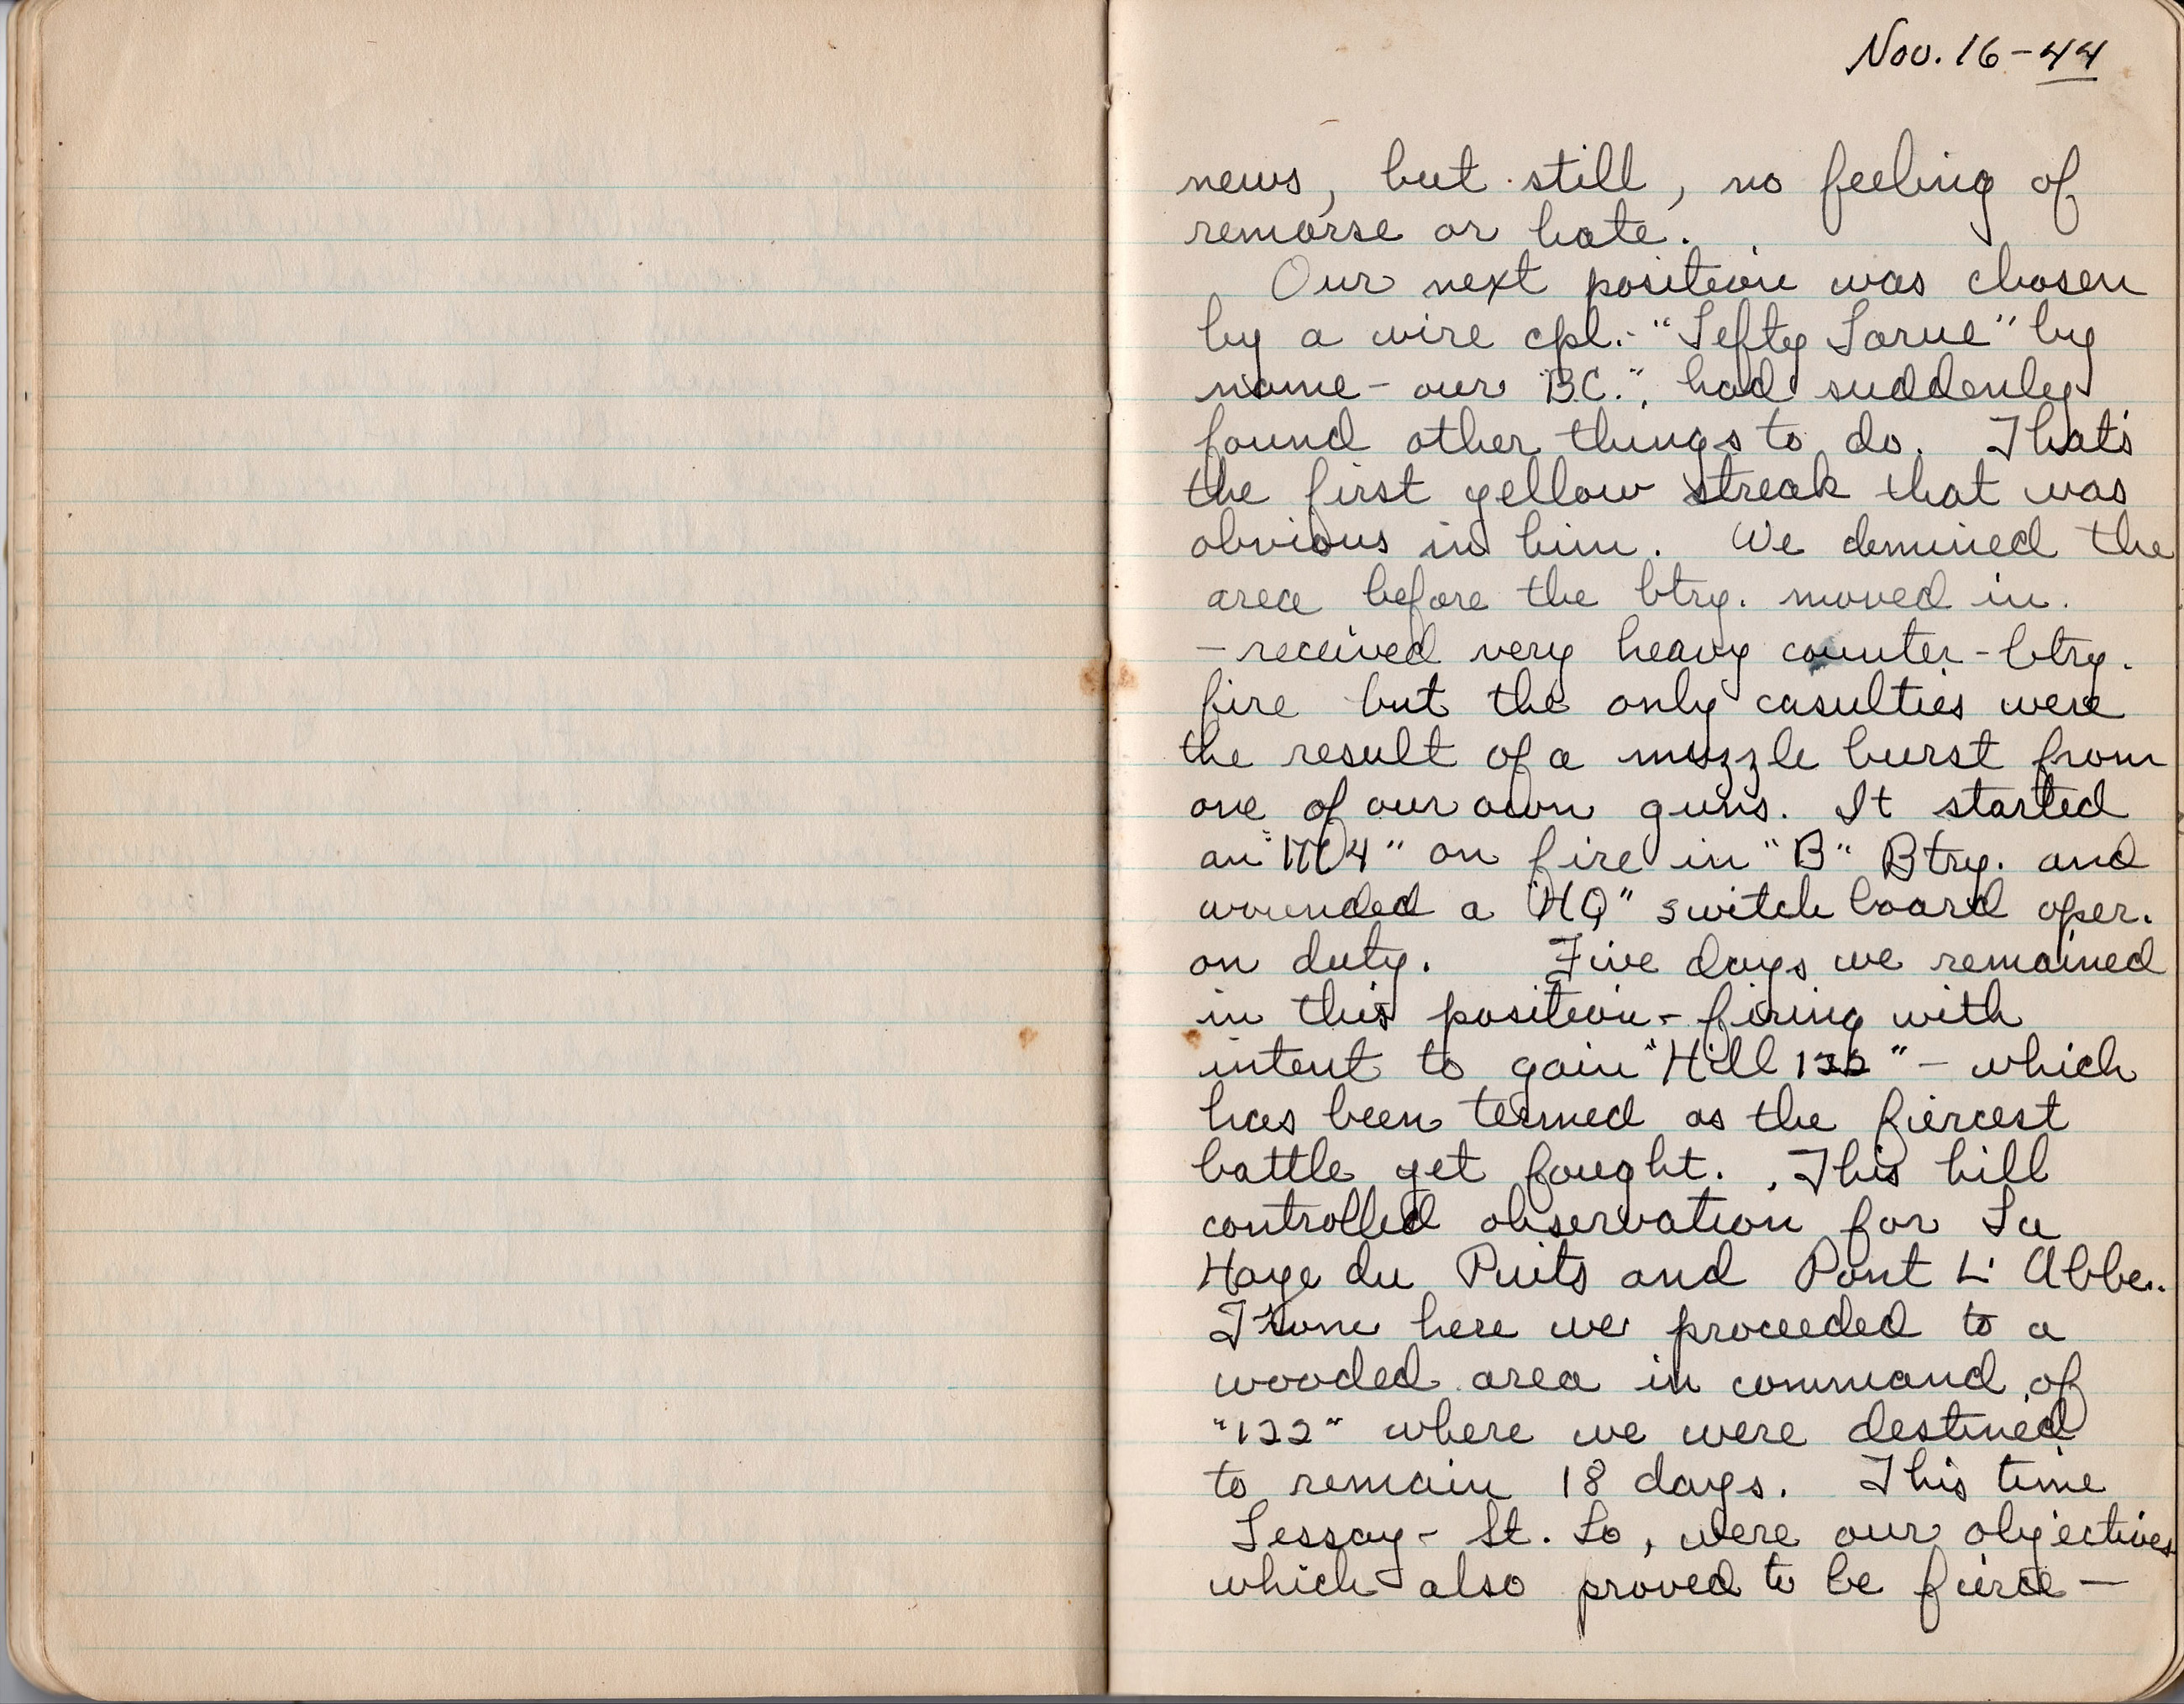 Nov. 16-44
news, but still, no feeling of
remorse or hate.
Our next position was chosen
by a wire cpl. - "Lefty Larue" by
name - our "B.C.", had suddenly
found other things to do. That's
the first yellow streak that was
obvious in him. We demined the
area before the btry. moved in.
- received very heavy counter-btry.
fire but the only casulties were
the result of a muzzle burst from
one of our own guns. It started
an "M4" on fire in "B" Btry. and
wounded a "HQ" switch board oper.
on duty. Five days we remained
in this position - firing with
intent to gain "Hill 122" - which
has been termed as the fiercest
battle yet fought. This hill
controlled observation for La
Haye du Puits and Pont L' Abbe..
From here we proceeded to a
wooded area in command of
"122" where we were destined
to remain 18 days. This time
Lessay - St. Lo, were our objectives
which also proved to be fierce -